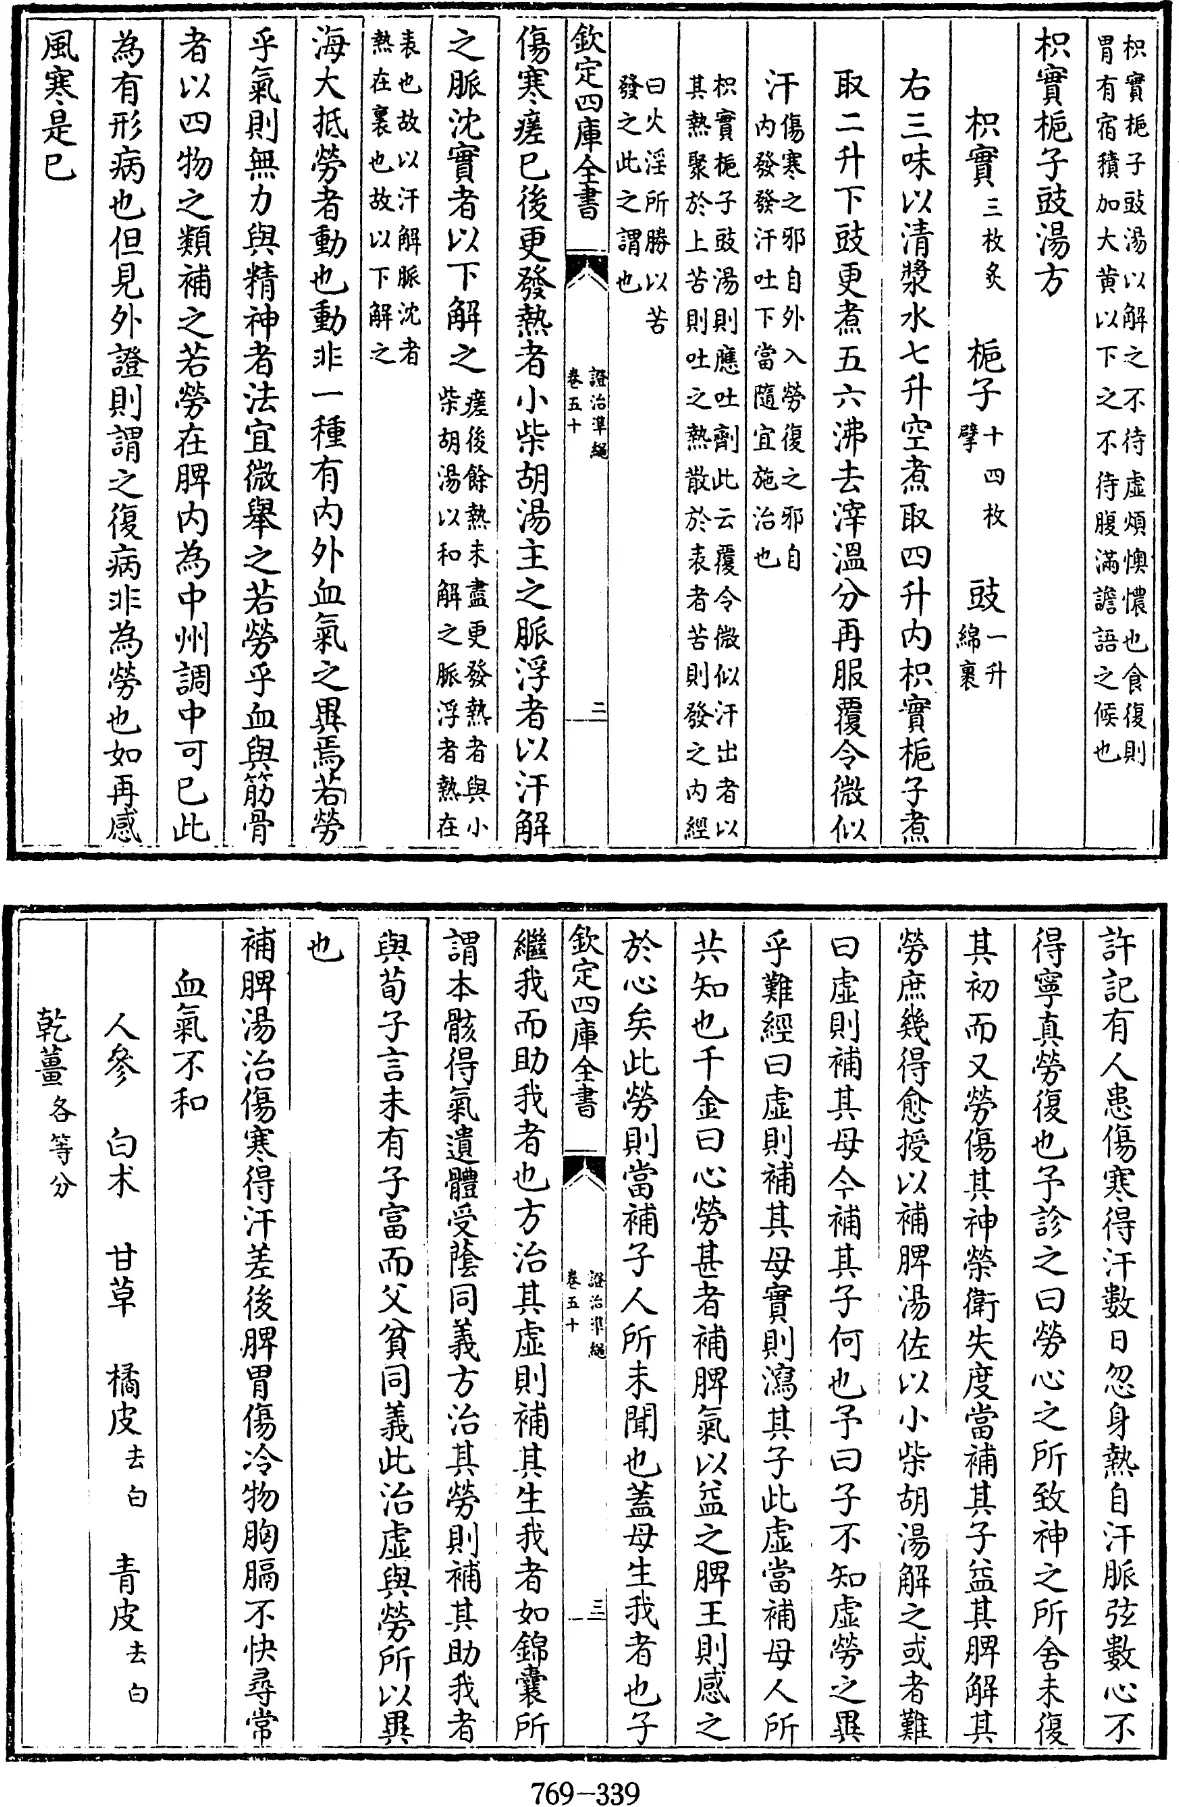 枳實梔子豉湯以解之不待虛煩懊憹也食復則
胃有宿積加大黃以下之不待腹滿譫語之候也
枳實梔子豉湯方
枳實三枚炙　梔子十四枚擘　豉一升綿裹
右三味以清漿水七升空煮取四升内枳實梔子煮
取二升下豉更煮五六沸去滓溫分再服覆令微似
汗傷寒之邪自外入勞復之邪自
内發發汗吐下當隨宜施治也
枳實梔子豉湯則應吐劑此云覆令微似汗出者以
其熱聚於上苦則吐之熱散於表者苦則發之内經
曰火淫所勝以苦
發之此之謂也
欽定四庫全書　證治準繩卷五十　二
傷寒瘥已後更發熱者小柴胡湯主之脈浮者以汗解
之脈沈實者以下解之瘥後餘熱未盡更發熱者與小
柴胡湯以和解之脈浮者熱在
表也故以汗解脈沈者
熱在裏也故以下解之
海大抵勞者動也動非一種有内外血氣之異焉若勞
乎氣則無力與精神者法宜微舉之若勞乎血與筋骨
者以四物之類補之若勞在脾内為中州調中可已此
為有形病也但見外證則謂之復病非為勞也如再感
風寒是已
許記有人患傷寒得汗數日忽身熱自汗脈弦數心不
得寧真勞復也予診之曰勞心之所致神之所舍未復
其初而又勞傷其神榮衛失度當補其子益其脾解其
勞庶幾得愈授以補脾湯佐以小柴胡湯解之或者難
曰虛則補其母今補其子何也予曰子不知虛勞之異
乎難經曰虛則補其母實則瀉其子此虛當補母人所
共知也千金曰心勞甚者補脾氣以益之脾王則感之
於心矣此勞則當補子人所未聞也蓋母生我者也子
欽定四庫全書　證治準繩卷五十　三
繼我而助我者也方治其虛則補其生我者如錦囊所
謂本骸得氣遺體受蔭同義方治其勞則補其助我者
與荀子言未有子富而父貧同義此治虛與勞所以異
也
補脾湯治傷寒得汗差後脾胃傷冷物胸膈不快尋常
血氣不和
人參　白朮　甘草　橘皮去白　青皮去白
乾薑各等分
769-339